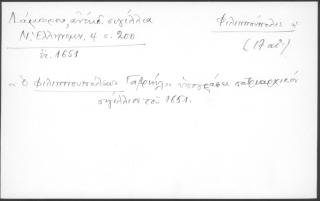 Λάμπρου, ἀνέκδ. σιγίλλια
Ν. Ἑλληνομν. 4 σ. 200
ἔτ. 1651
Φιλιππούπολις
(17 αἰ.)
« Ὁ Φιλιππουπόλεως Γαβριὴλ ὑπογράφει πατριαρχικὸν
σιγίλλιον τοῦ 1651.